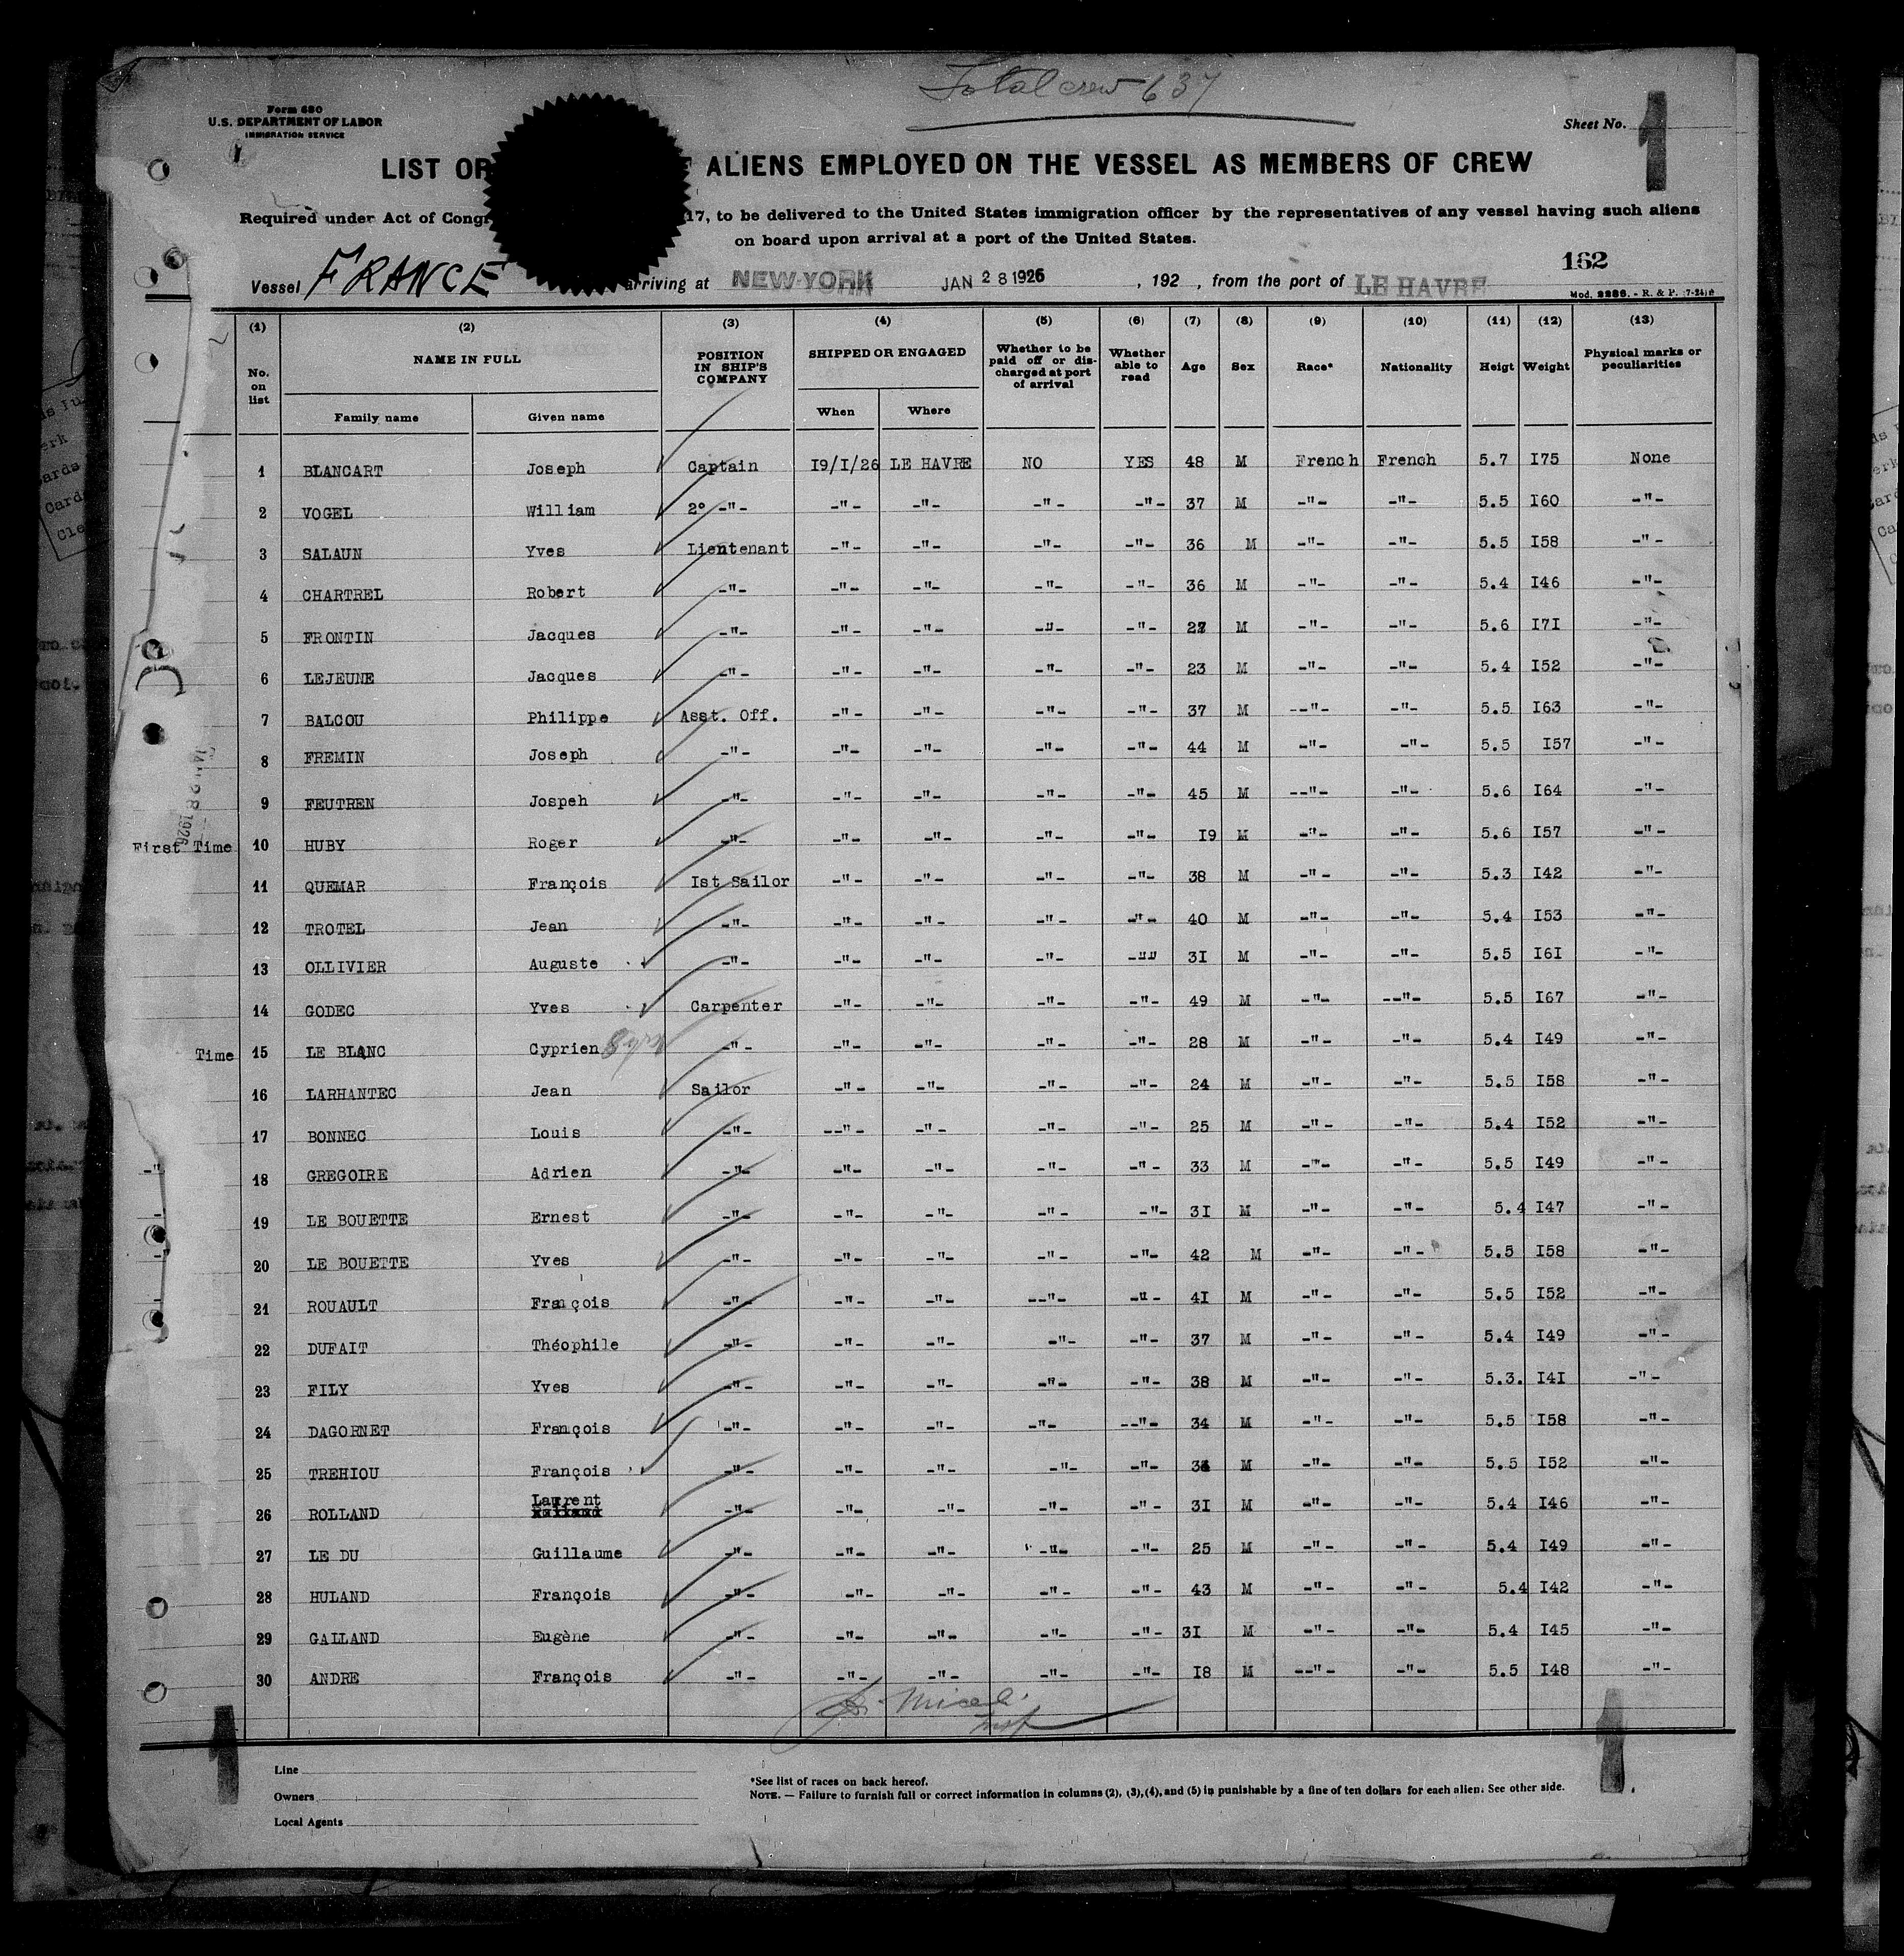 Total crew 637
Form 680
U.S. DEPARTMENT OF LABOR
IMMIGRATION SERVICE
Sheet No. 1
LIST OR ALIENS EMPLOYED ON THE VESSEL AS MEMBERS OF CREW
Required under Act of Congr 17, to be delivered to the United States immigration officer by the representatives of any vessel having such aliens
on board upon arrival at a port of the United States.
162
Vessel FRANCE arriving at NEW-YORK JAN 28 1926 , 192 , from the port of LE HAVRE
Mod. 2286. - R. & P.
(1) (2) (3) (4) (5) (6) (7) (8) (9) (10) (11) (12) (13)
No. on list NAME IN FULL POSITION IN SHIP'S COMPANY SHIPPED OR ENGAGED Whether to be paid off or discharged at port of arrival Whether able to read Age Sex Race* Nationality Heigt Weight Physical marks or peculiarities
Family name Given name When Where
1 BLANCART Joseph Captain I9/I/26 LE HAVRE NO YES 48 M French French 5.7 I75 None
2 VOGEL William 2° -"- -"- -"- -"- -"- 37 M -"- -"- 5.5 I60 -"-
3 SALAUN Yves Lientenant -"- -"- -"- -"- 36 M -"- -"- 5.5 I58 -"-
4 CHARTREL Robert -"- -"- -"- -"- -"- 36 M -"- -"- 5.4 I46 -"-
5 FRONTIN Jacques -"- -"- -"- -"- -"- M -"- -"- 5.6 I7I -"-
6 LEJEUNE Jacques -"- -"- -"- -"- -"- 23 M -"- -"- 5.4 I52 -"-
7 BALCOU Philippe Asst. Off. -"- -"- -"- -"- 37 M --"- -"- 5.5 I63 -"-
8 FREMIN Joseph -"- -"- -"- -"- -"- 44 M -"- -"- 5.5 I57 -"-
9 FEUTREN Jospeh -"- -"- -"- -"- -"- 45 M --"- -"- 5.6 I64 -"-
First Time 10 HUBY Roger -"- -"- -"- -"- -"- I9 M -"- -"- 5.6 I57 -"-
11 QUEMAR François Ist Sailor -"- -"- -"- -"- 38 M -"- -"- 5.3 I42 -"-
12 TROTEL Jean -"- -"- -"- -"- -"- 40 M -"- -"- 5.4 I53 -"-
13 OLLIVIER Auguste -"- -"- -"- -"- -"" 3I M -"- -"- 5.5 I6I -"-
14 GODEC Yves Carpenter -"- -"- -"- -"- 49 M -"- --"- 5.5 I67 -"-
Time 15 LE BLANC Cyprien -"- -"- -"- -"- -"- 28 M -"- -"- 5.4 I49 -"-
16 LARHANTEC Jean Sailor -"- -"- -"- -"- 24 M -"- -"- 5.5 I58 -"-
17 BONNEC Louis -"- --"- -"- -"- -"- 25 M -"- -"- 5.4 I52 -"-
18 GREGOIRE Adrien -"- -"- -"- -"- -"- 33 M -"- -"- 5.5 I49 -"-
19 LE BOUETTE Ernest -"- -"- -"- -"- -"- 3I M -"- -"- 5.4 I47 -"-
20 LE BOUETTE Yves -"- -"- -"- -"- -"- 42 M -"- -"- 5.5 I58 -"-
21 ROUAULT François -"- -"- -"- --"- -"- 4I M -"- -"- 5.5 I52 -"-
22 DUFAIT Théophile -"- -"- -"- -"- -"- 37 M -"- -"- 5.4 I49 -"-
23 FILY Yves -"- -"- -"- -"- -"- 38 M -"- -"- 5.3. I4I -"-
24 DAGORNET François -"- -"- -"- -"- --"- 34 M -"- -"- 5.5 I58 -"-
25 TREHIOU François -"- -"- -"- -"- -"- M -"- -"- 5.5 I52 -"-
26 ROLLAND Laurent -"- -"- -"- -"- -"- 3I M -"- -"- 5.4 I46 -"-
27 LE DU Guillaume -"- -"- -"- -"- -"- 25 M -"- -"- 5.4 I49 -"-
28 HULAND François -"- -"- -"- -"- -"- 43 M -"- -"- 5.4 I42 -"-
29 GALLAND Eugène -"- -"- -"- -"- -"- 3I M -"- -"- 5.4 I45 -"-
30 ANDRE François -"- -"- -"- -"- -"- I8 M --"- -"- 5.5 I48 -"-
JAN 28 1926
1 1
Line
Owners
Local Agents
*See list of races on back hereof.
NOTE. — Failure to furnish full or correct information in columns (2), (3), (4), and (5) is punishable by a fine of ten dollars for each alien. See other side.